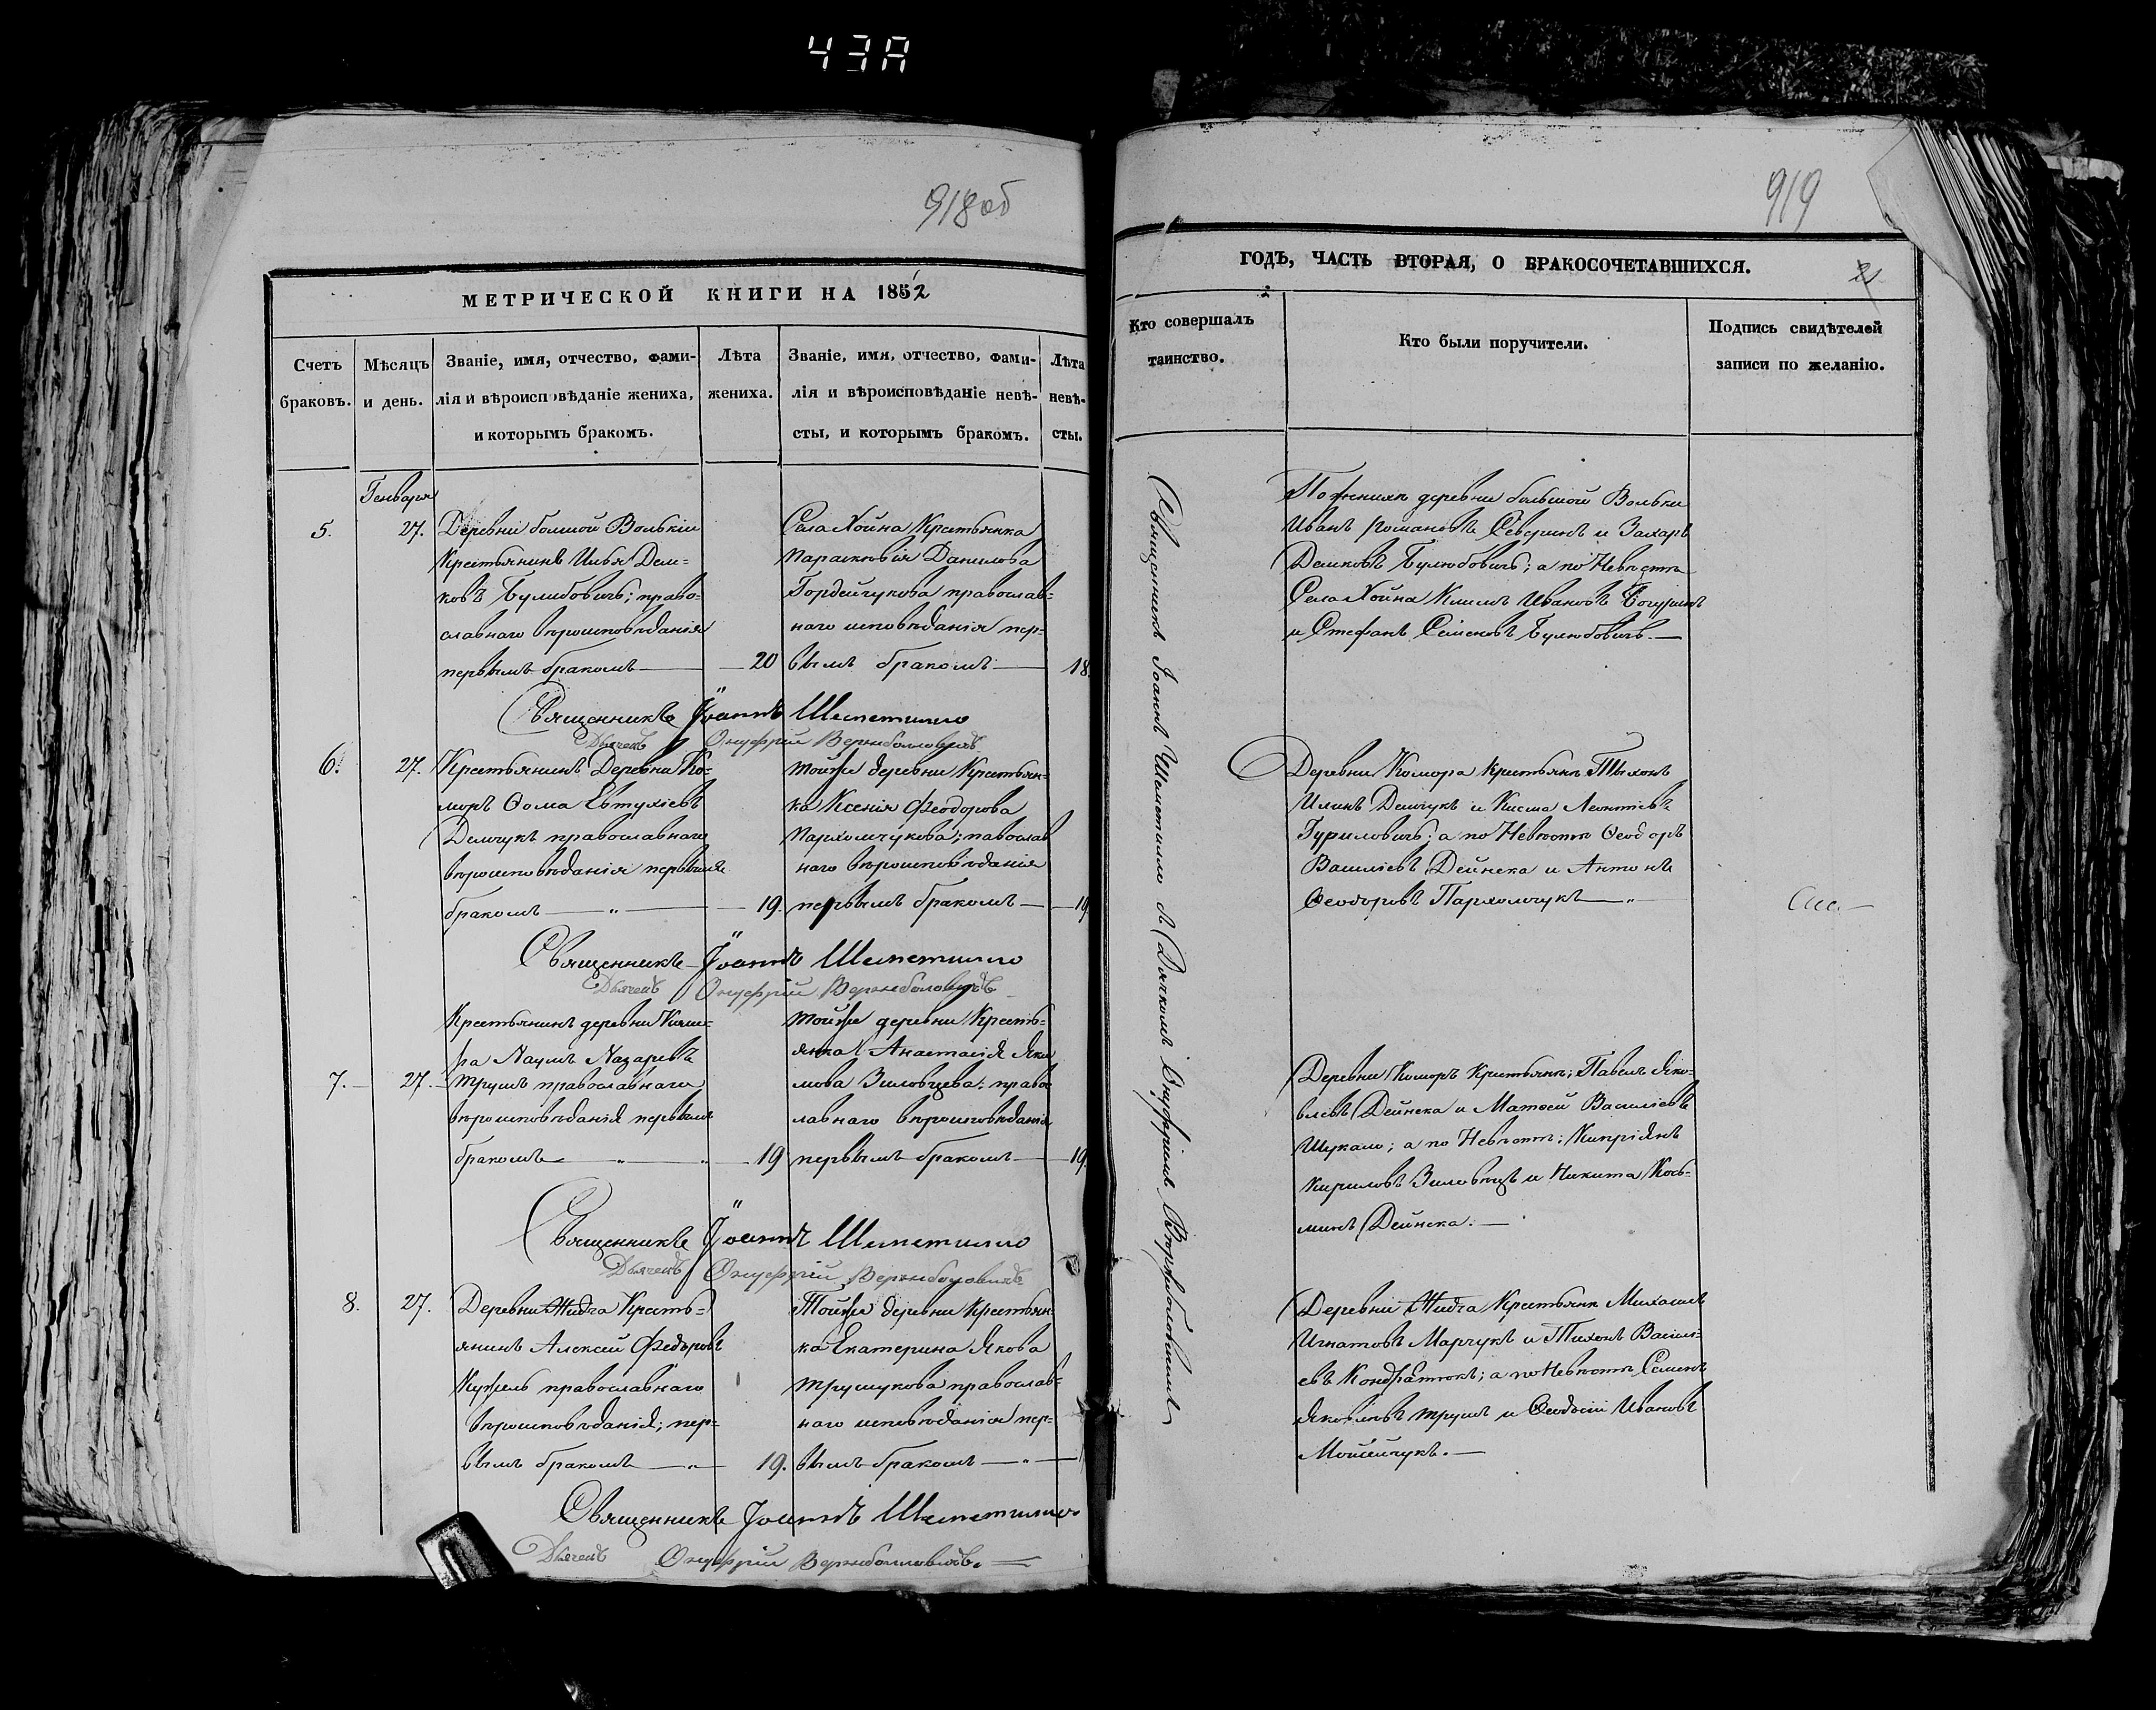 43A
918об
МЕТРИЧЕСКОЙ КНИГИ НА 1852
Счетъ браковъ.
Мѣсяцъ и день.
Званіе, имя, отчество, фами-
лія и вѣроисповѣданіе жениха,
и которымъ бракомъ.
Лѣта
жениха.
Званіе, имя, отчество, фами-
лія и вѣроисповѣданіе невѣ-
сты, и которымъ бракомъ.
Лѣта
невѣ-
сты.
Генваря
5.
27.
Деревни болшой Волькіи
Крестьянинъ Илья Дем=
ковъ Булибовичъ; право=
славнаго вѣроисповѣданія
первымъ бракомъ
20
Села Хойна Крестьянка
Параскевія Данилова
Гордейчукова православ=
наго исповѣданія пер=
вымъ бракомъ
18.
Священникъ Іоаннъ Шеметилло
Дьячекъ Онуфрій
6.
27.
Крестьянинъ Деревни Ко=
моръ Ѳома Евтухіевъ
Демчукъ православнаго
вѣроисповѣданія первымъ
бракомъ
19.
тойже деревни Крестьян=
ка Ксенія Феодорова
Пархомчукова; павослав
наго вѣроисповѣданія
первымъ бракомъ
19
Священникъ Іоаннъ Шеметилло
Дьячекъ Онуфрій
7.
27.
Крестьянинъ деревни
Наумъ Назаревъ
трушъ православнаго
вѣроисповѣданія первымъ
бракомъ
19
тойже деревни Кресть=
янка Анастасія Яки
мова Зиловцева: право
лавнаго вѣроисповѣданія
первымъ бракомъ
19.
Священникъ Іоаннъ Шеметилло
Дьячекъ Онуфрій
8.
27.
Деревни Жидча Кресть=
янинъ Алексей Федоровъ
Кужель православнаго
вѣроисповѣданія; пер=
вымъ бракомъ
19.
Тойже деревни Крестьян
ка Екатерина Якова
трушукова православ=
наго исповѣданія пер=
вымъ бракомъ
Священникъ Іоаннъ Шеметилло
Дьячекъ Онуфрій
919
ГОДЪ, ЧАСТЬ ВТОРАЯ, О БРАКОСОЧЕТАВШИХСЯ.
Кто совершалъ
таинство.
Кто были поручители.
Подпись свидѣтелей
записи по желанію.
Священникъ Іоаннъ Шеметилло съ Дьячкомъ
По женихѣ деревни большой Вольки
Иванъ Романовъ Северинъ и Захаръ
Демковъ Булюбовичъ; а по Невѣсте
Села Хойна Климъ Ивановъ
и Стефанъ Семеновъ Булюбовичъ.
Деревни Комора крестьяне Тихонъ
Илинъ Демчукъ и Кисма Леонтіевъ
Гуриловичъ; а по Невѣсте Ѳеодоръ
Василіевъ Дейнека и Антонъ
Ѳеодоровъ Пархомчукъ
Деревни Коморъ Крестьяне; Павелъ Яко=
влевъ Дейнека и Матвей Василіевъ
Шукало; а по Невѣсте; Кипріянъ
Кириловъ Зиловецъ и Никита Козь=
минъ Дейнека.
Деревни Жидча Крестьяне Михаилъ
Игнатовъ Марчукъ и Тихонъ Василі=
евъ Кондратюкъ; а по Невѣсте Семенъ
Яковлевъ трушъ и Ѳеодосій Ивановъ
Мойсейчукъ.